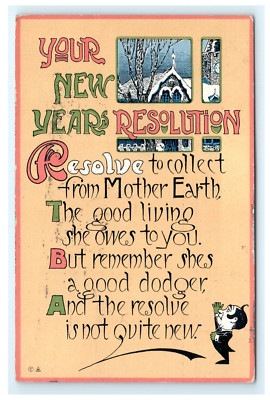 YOUR
NEW
YEARS RESOLUTION
Resolve to collect
from Mother Earth,
The good living
she owes to you.
But remember shes
a good dodger,
And the resolve
is not quite new.